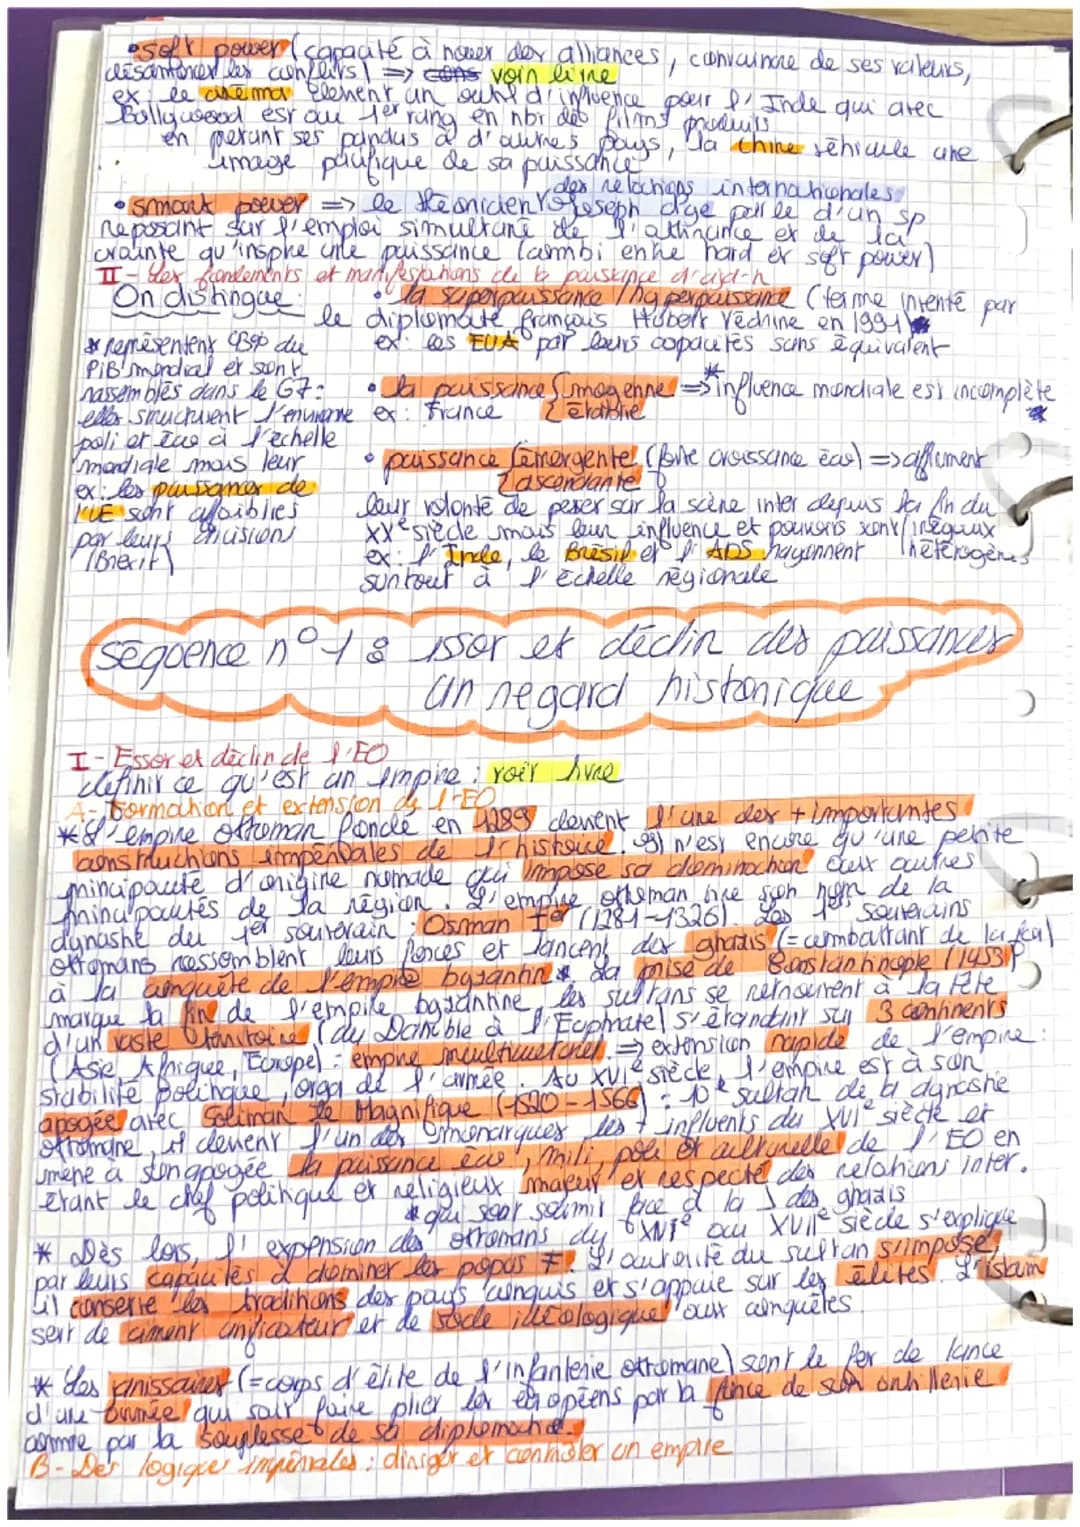 •soft power (capacité à nouer des alliances, convaincre de ses valeurs,
désamorcer les conflits) => voir livre
ex: le cinéma devient un outil d'influence pour l'Inde qui avec
Bollywood est au 1er rang en nbr des films produits
en prêtant ses pandas à d'autres pays, la Chine véhicule une
image pacifique de sa puissance
des relations internationales
• smart power => le théoricien Joseph Nye parle d'un sp
reposant sur l'emploi simultané de l'attirance et de la
crainte qu'inspire une puissance (combi entre hard et soft power)
II- Les fondements et manifestations de la puissance d'ajd-h
On distingue: • la superpuissance / hyperpuissance (terme inventé par
le diplomate français Hubert Védrine en 1991)
ex: les EUA par leurs capacités sans équivalent
* représentent du
PIB mondial et sont
rassemblés dans le G7:
elles structurent l'environe
poli et éco à l'échelle
mondiale mais leur
ex: les puissances de
l'UE sont affaiblies
par leurs divisions
(Brexit)
• la puissance { moyenne => influence mondiale est incomplète *
{ établie
ex: France
• puissance {émergente (forte croissance éco) => affirment
{ascendante
leur volonté de peser sur la scène inter depuis la fin du
XXe siècle mais leur influence et pouvoirs sont inégaux
hétérogènes
ex: l'Inde, le Brésil et l'ADS rayonnent
surtout à l'échelle régionale
séquence n°1 : essor et déclin des puissances
un regard historique
I- Essor et déclin de l'EO
définir ce qu'est un empire : voir livre
A- Formation et extension de l'EO
* L'empire ottoman fondé en 1289 devient l'une des + importantes
constructions impériales de l'histoire. Il n'est encore qu'une petite
principauté d'origine nomade qui impose sa domination aux autres
principautés de la région. L'empire ottoman tire son nom de la
dynastie du 1er souverain : Osman Ier (1281-1326). Les 1ers souverains
ottomans rassemblent leurs forces et lancent des ghazis (= combattant de la foi)
à la conquête de l'empire byzantin *. La prise de Constantinople (1453)
marque la fin de l'empire byzantine, les sultans se retrouvent à la tête
d'un vaste territoire (du Danube à l'Euphrate) s'étendant sur 3 continents
(Asie, Afrique, Europe) : empire multiculturel. => extension rapide de l'empire :
stabilité politique, orga de l'armée. Au XVIe siècle, l'empire est à son
apogée avec Soliman le Magnifique (1520-1566) : 10e sultan de la dynastie
ottomane, il devient l'un des monarques les + influents du XVIe siècle et
mène à son apogée la puissance éco, mili, poli et culturelle de l'EO en
étant le chef politique et religieux majeur et respecté des relations inter.
* qui sont soumis face à la des ghazis
* Dès lors, l'expension des ottomans du XVIe au XVIIe siècle s'explique
par leurs capacités à dominer les popus ≠. L'autorité du sultan s'impose,
il conserve les traditions des pays conquis et s'appuie sur les élites. L'islam
sert de ciment unificateur et de socle idéologique aux conquêtes
* Les janissaires (=corps d'élite de l'infanterie ottomane) sont le fer de lance
d'une armée qui sait faire plier les européens par la force de son artillerie
comme par la souplesse de sa diplomatie.
B- Des logiques impériales : diriger et contrôler un empire